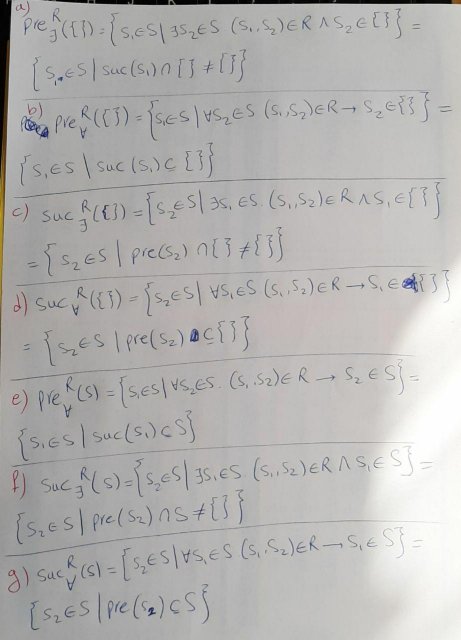 a) pre_∃^R({}) = {s₁∈S | ∃s₂∈S (s₁,s₂)∈R ∧ s₂∈{}} =
{s₁∈S | suc(s₁)∩{} ≠ {}}
b) pre_∀^R({}) = {s₁∈S | ∀s₂∈S (s₁,s₂)∈R → s₂∈{}} =
{s₁∈S | suc(s₁) ⊆ {}}
c) suc_∃^R({}) = {s₂∈S | ∃s₁∈S. (s₁,s₂)∈R ∧ s₁∈{}}
= {s₂∈S | pre(s₂) ∩{} ≠{}}
d) suc_∀^R({}) = {s₂∈S | ∀s₁∈S (s₁,s₂)∈R → s₁∈{}}
= {s₂∈S | pre(s₂) ⊂{}}
e) pre_∀^R(S) = {s₁∈S | ∀s₂∈S. (s₁,s₂)∈R → s₂∈S} =
{s₁∈S | suc(s₁) ⊆ S}
f) suc_∃^R(S) = {s₂∈S | ∃s₁∈S. (s₁,s₂)∈R ∧ s₁∈S} =
{s₂∈S | pre(s₂) ∩S ≠ {}}
g) suc_∀^R(S) = {s₂∈S | ∀s₁∈S (s₁,s₂)∈R → s₁∈S} =
{s₂∈S | pre(s₂) ⊆ S}